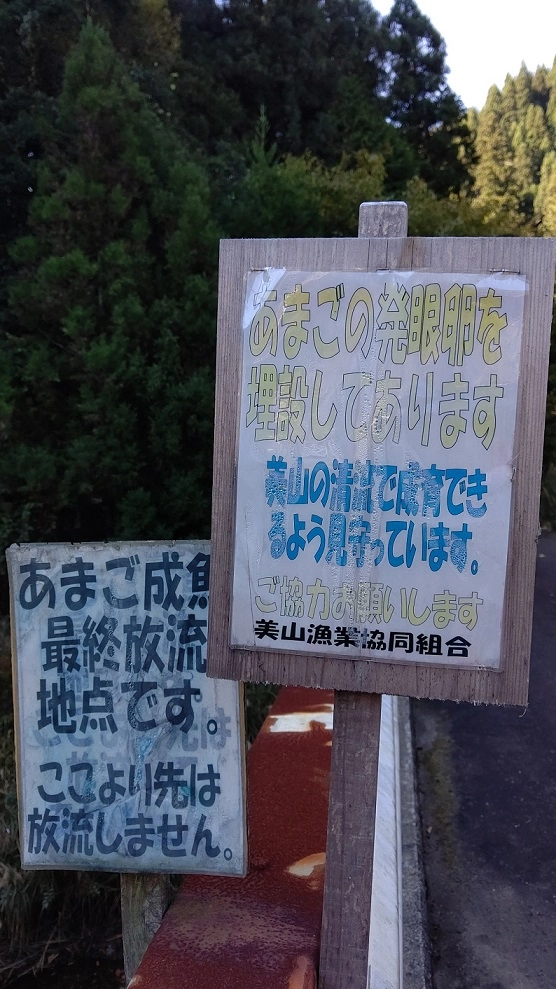 あまごの発眼卵を
埋設してあります
美山の清流で成育でき
るよう見守っています。
ご協力お願いします
美山漁業協同組合
あまご成魚
最終放流
地点です。
ここより先は
放流しません。